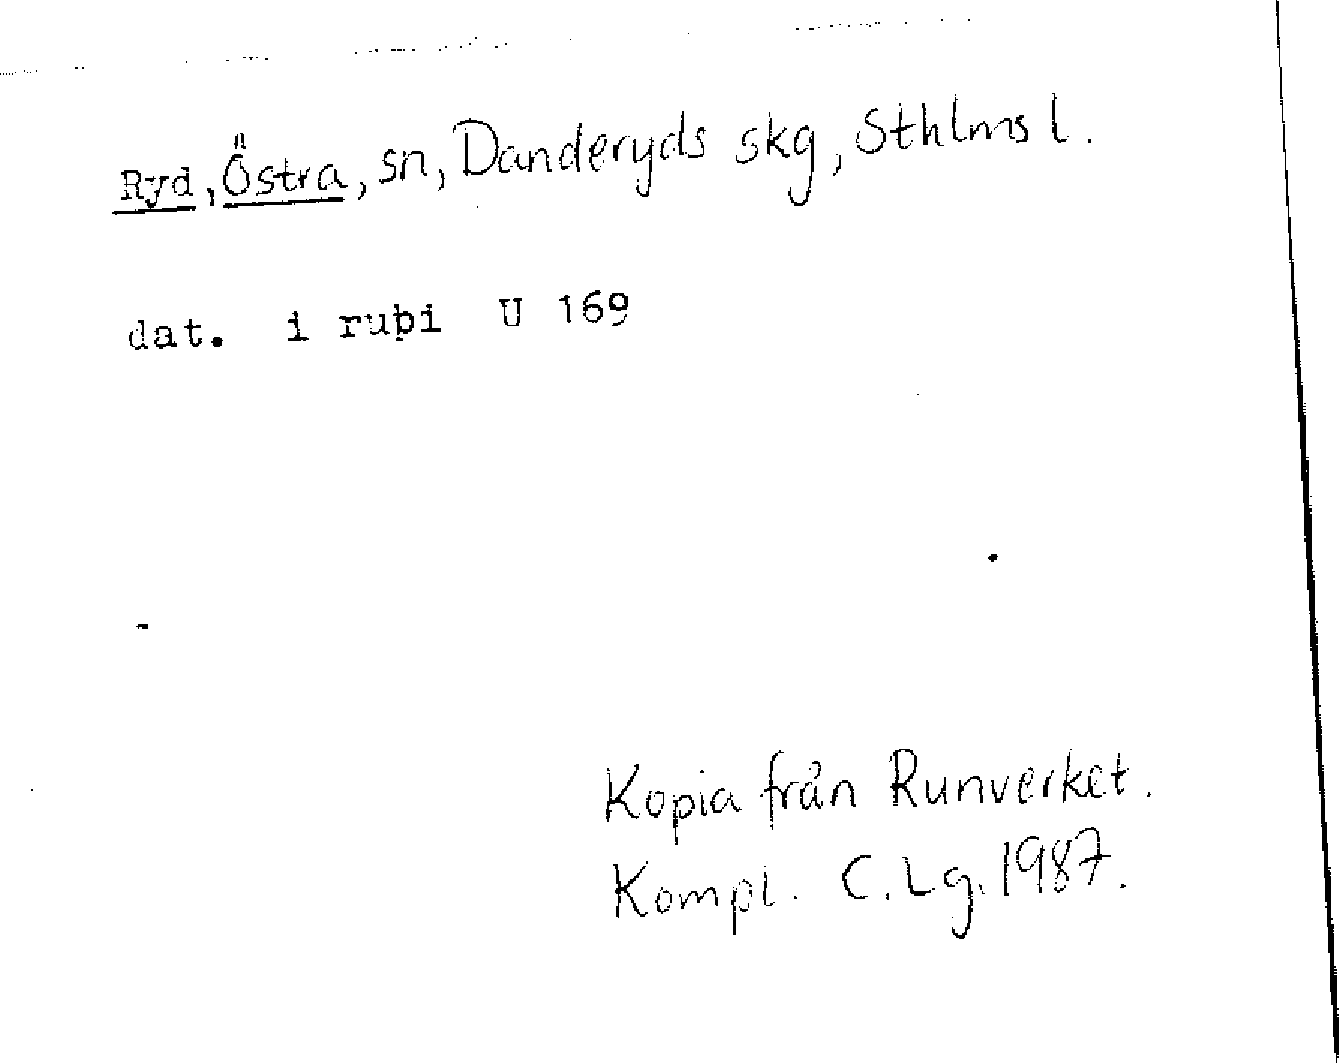 Ryd, Östra, sn, Danderyds skg, Sthlms l.
dat. i ruþi U 169
Kopia från Runverket.
Kompl. C. Lg. 1987.